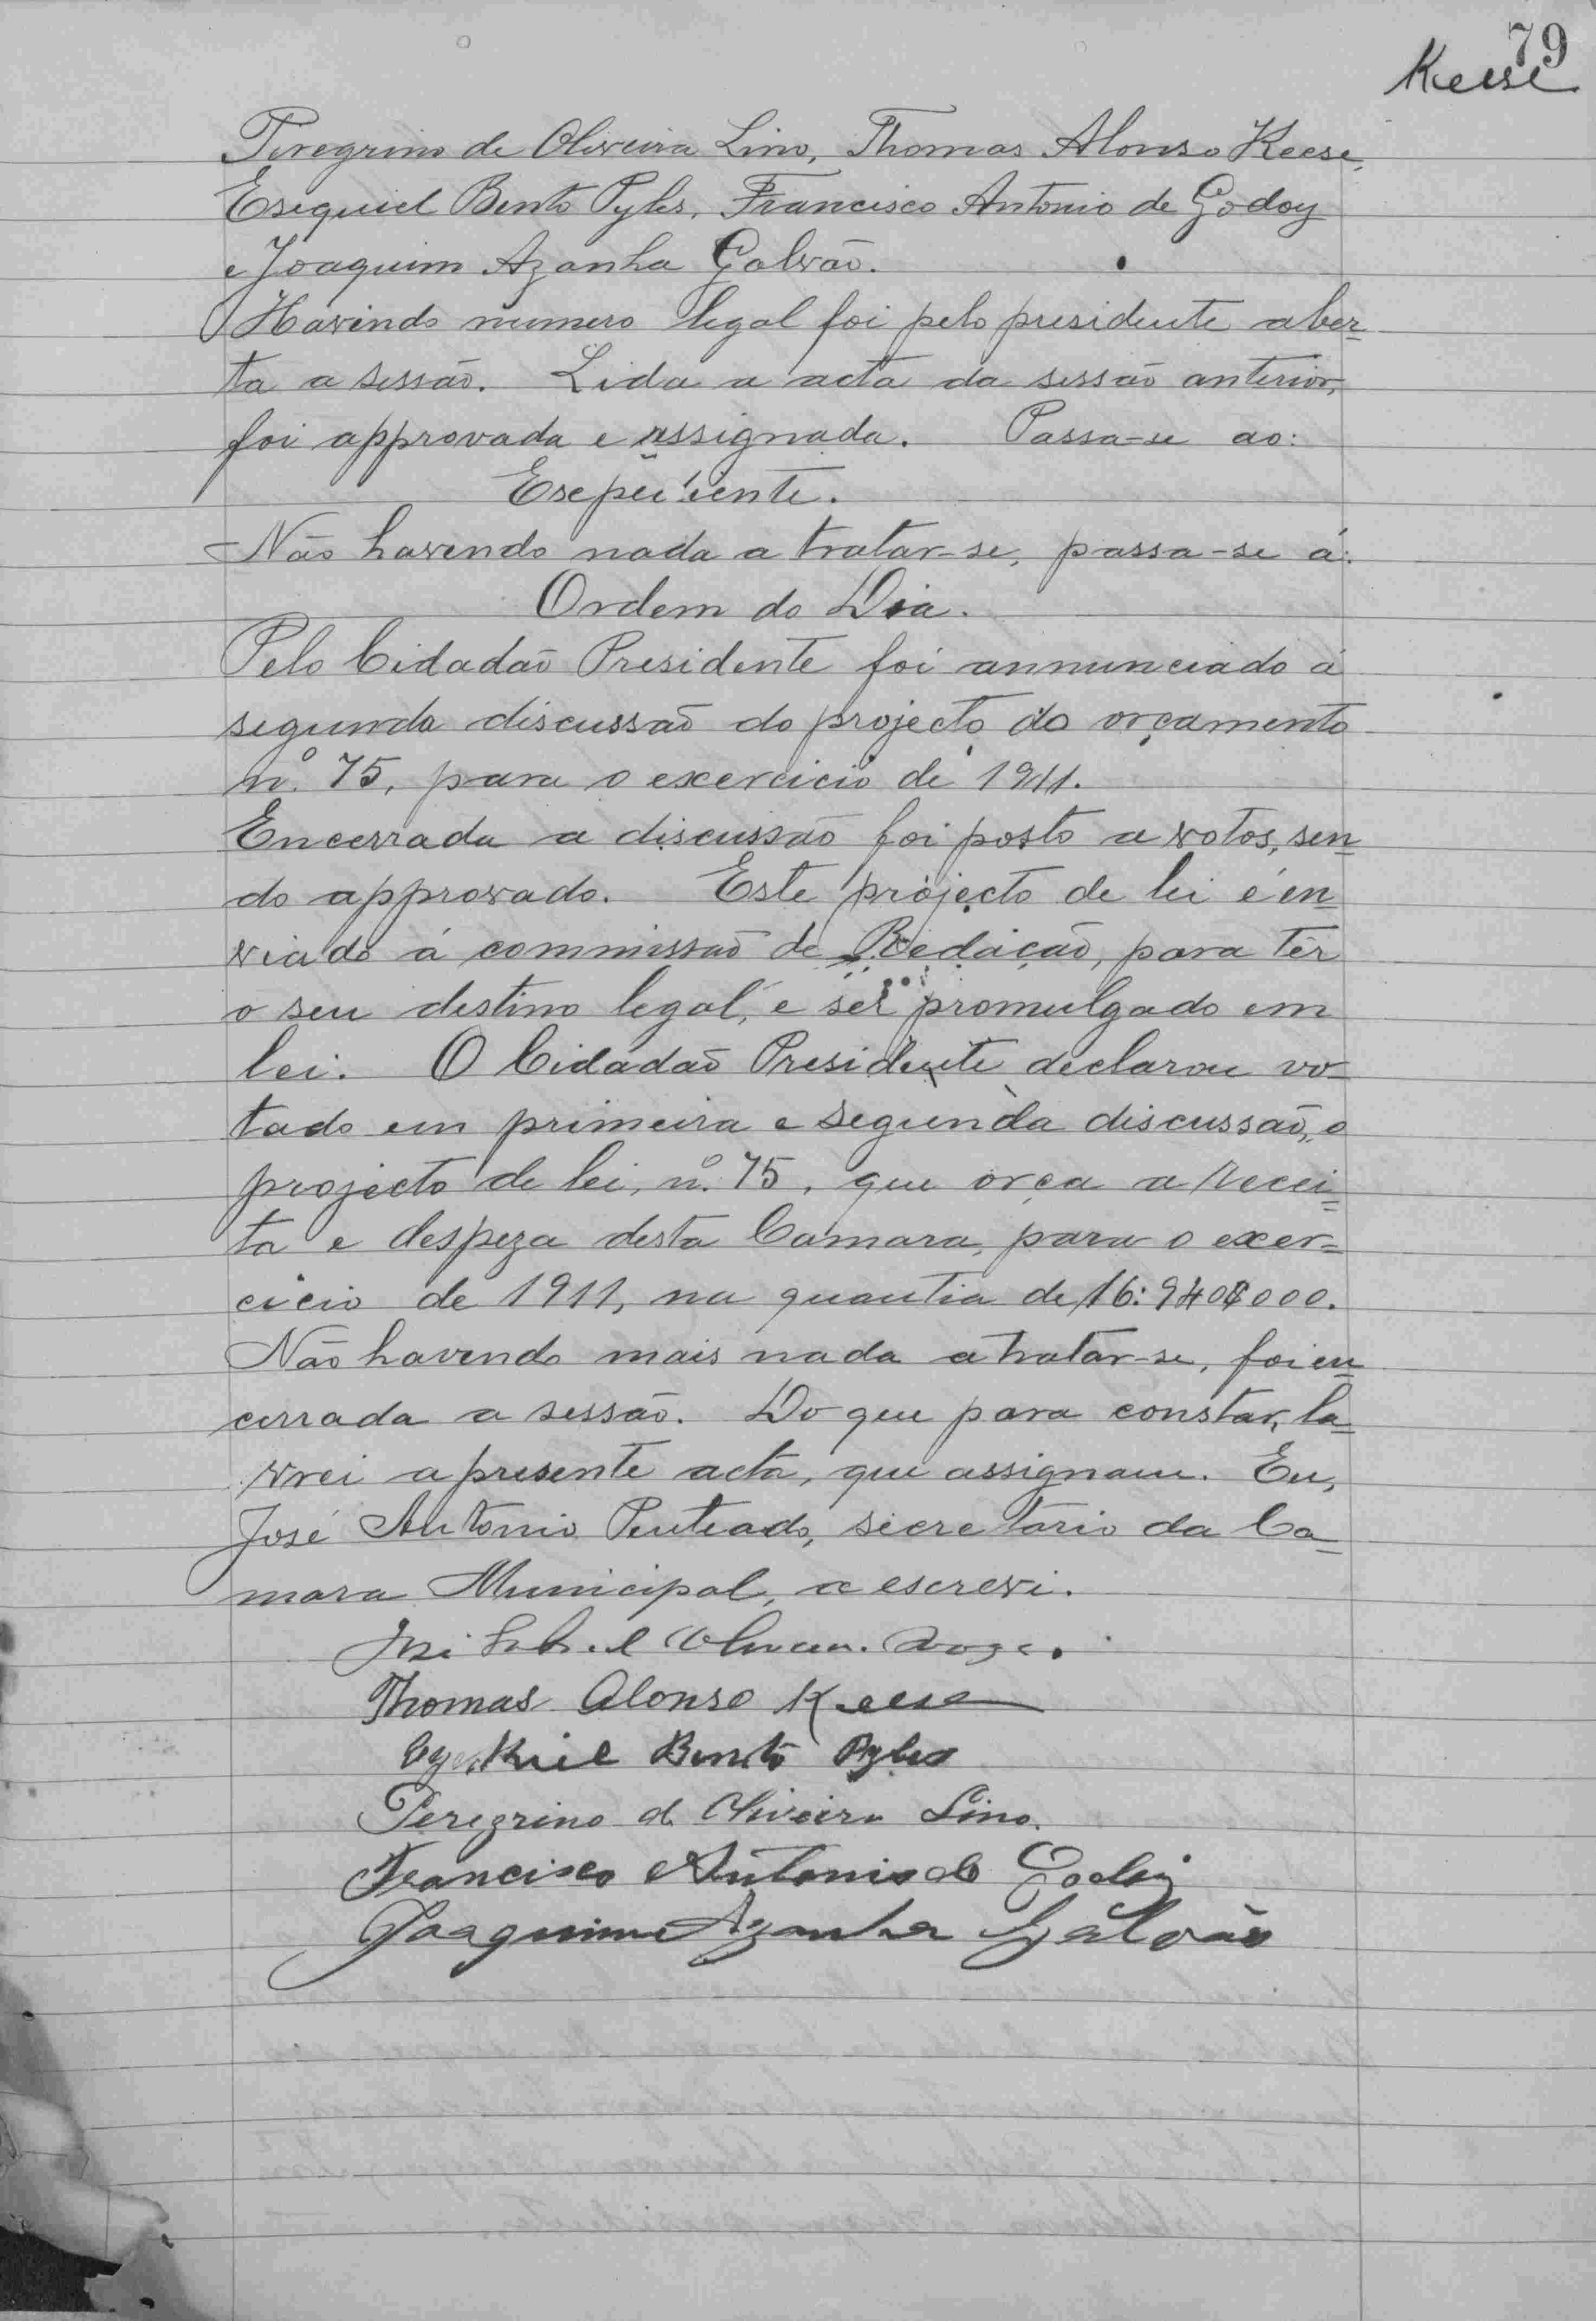 79
Keese
Peregrino de Oliveira Lino, Thomas Alonso Keese,
Esequiel Bento Pyles, Francisco Antonio de Godoy
e Joaquim Azanha Galvão.
Havindo numero legal foi pelo presidente aber-
ta a sessão. Lida a acta da sessão anterior,
foi approvada e assignada. Passa-se ao:
Expediente.
Não havendo nada a tratar-se, passa-se á:
Ordem do Dia.
Pelo Cidadão Presidente foi annunciado á
segunda discussão do projecto do orçamento
nº 75, para o exercicio de 1911.
Encerrada a discussão foi posto a votos, sen-
do approvado. Este projecto de lei é en-
viado á commissão de Redação, para ter
o seu destino legal, e ser promulgado em
lei. O Cidadão Presidente declarou vo-
tado em primeira e segunda discussão, o
projecto de lei, nº 75, que orça a recei=
ta e despeza desta Camara, para o exer=
cicio de 1911, na quantia de 16:940$000.
Não havendo mais nada a tratar-se, foi en-
cerrada a sessão. Do que para constar, la-
vrei a presente acta, que assignam. Eu,
José Antonio Penteado, secretario da Ca=
mara Municipal, a escrevi.
Thomas Alonso Keese
Bento Pyles
Peregrino de Oliveira Lino.
Francisco Antonio de Godoy
Joaquim Azanha Galvão